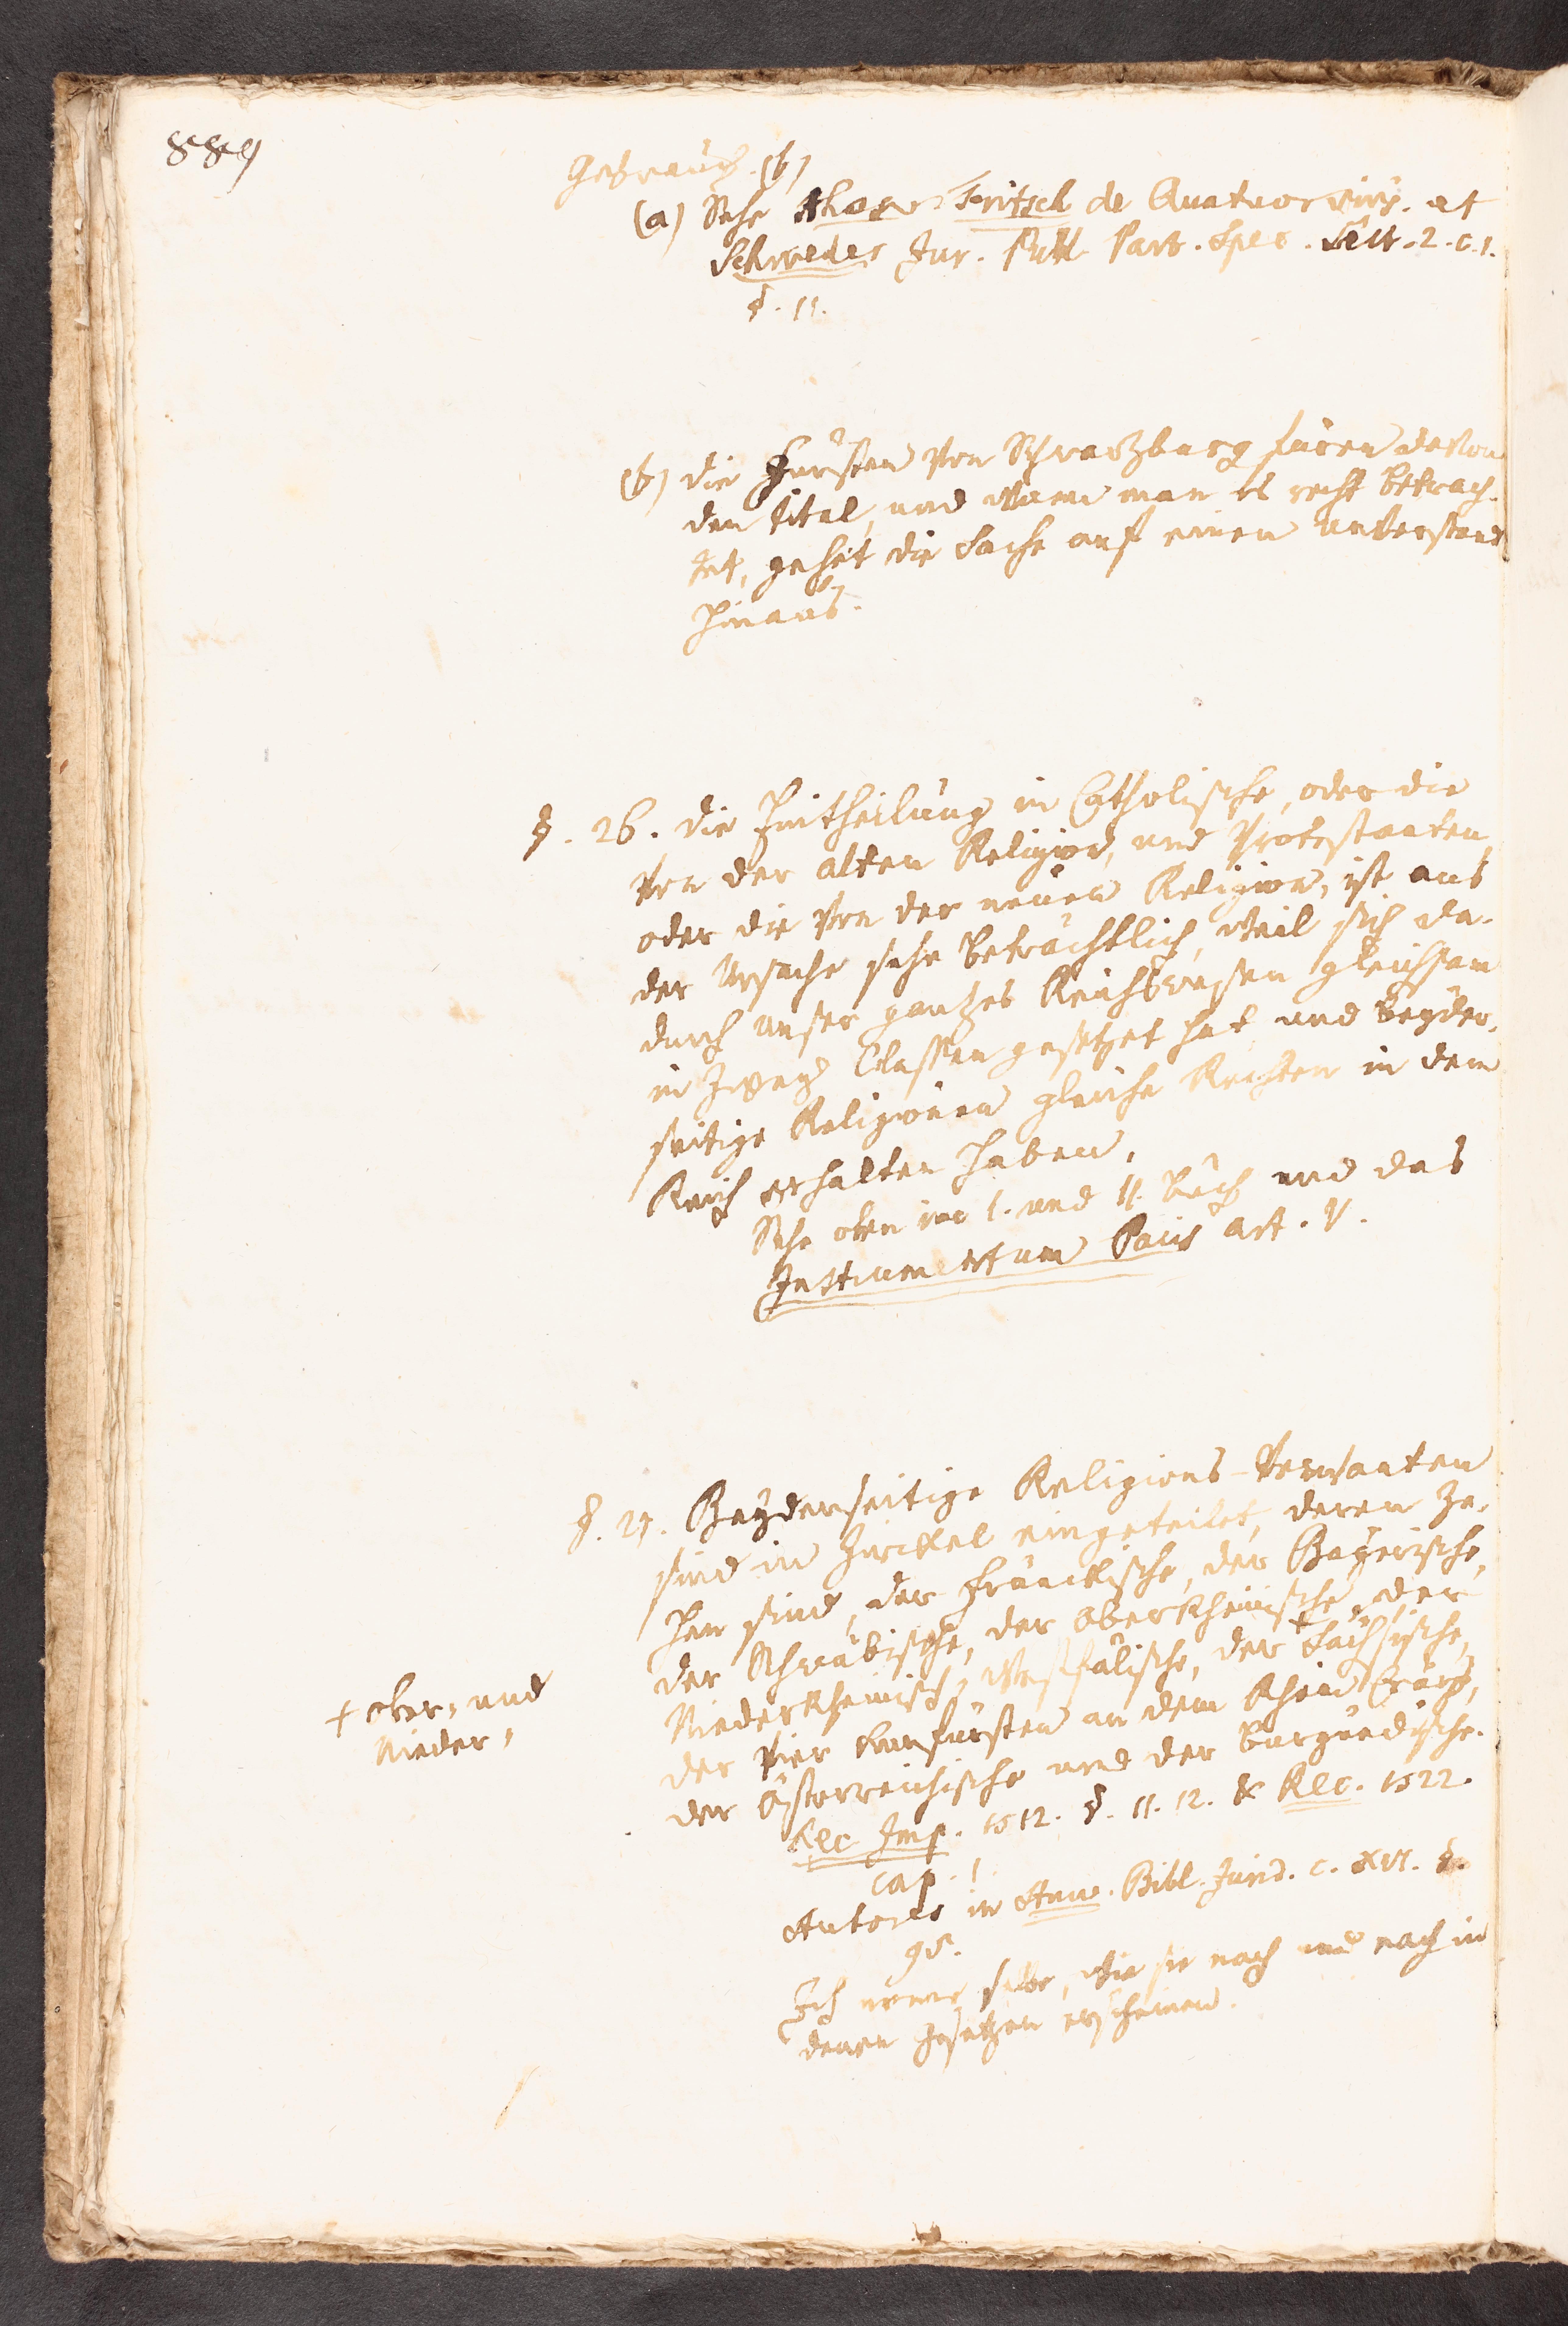 889
Gebrauch. (b)
(a) Sehe Ahasv. Fritsch de Quatuorviris. et
Schweder Jur. Publ. Part. Spec. Sect. 2. c. 1.
§. 11.
(b) die Fürsten von Schwartzburg füren davon
den titel, und wann man es recht betrach-
tet, gehet die Sache auf einen Unverstand
hinaus.
§. 26. die Eintheilung in Catholische, oder die
von der alten Religion, und Protestanten,
oder die von der neuen Religion, ist aus
der Ursache sehr beträchtlich, weil sich da-
durch unser gantzes Reichswesen gleichsam
in Zwey Classen gesetzet hat und beyder-
seitige Religionen gleiche Rechten in dem
Reich erhalten haben.
Sehe oben im I. und II. Buch und das
Instrumentum Pacis art. V.
§. 27. Beyderseitige Religions-Verwanten
sind in Zirckel eingeteilet, deren Ze-
hen sind, der Fränckische, der Bayerische,
der Schwäbische, der Oberrheinische, der
Niederrheinisch-Westfälische, der + Sächsische,
der vier Churfürsten an dem Rhein Crays,
der Österreichische und der Burgundische.
+ ober- und
Nieder-
Rec. Imp. 1512. §. 11. 12. & Rec. 1522.
cap. 1.
Autores in Ann. Bibl. Jurid. c. XVI. §.
95.
Ich nenne selbe, wie sie nach und nach in
denen Gesetzen erscheinen.